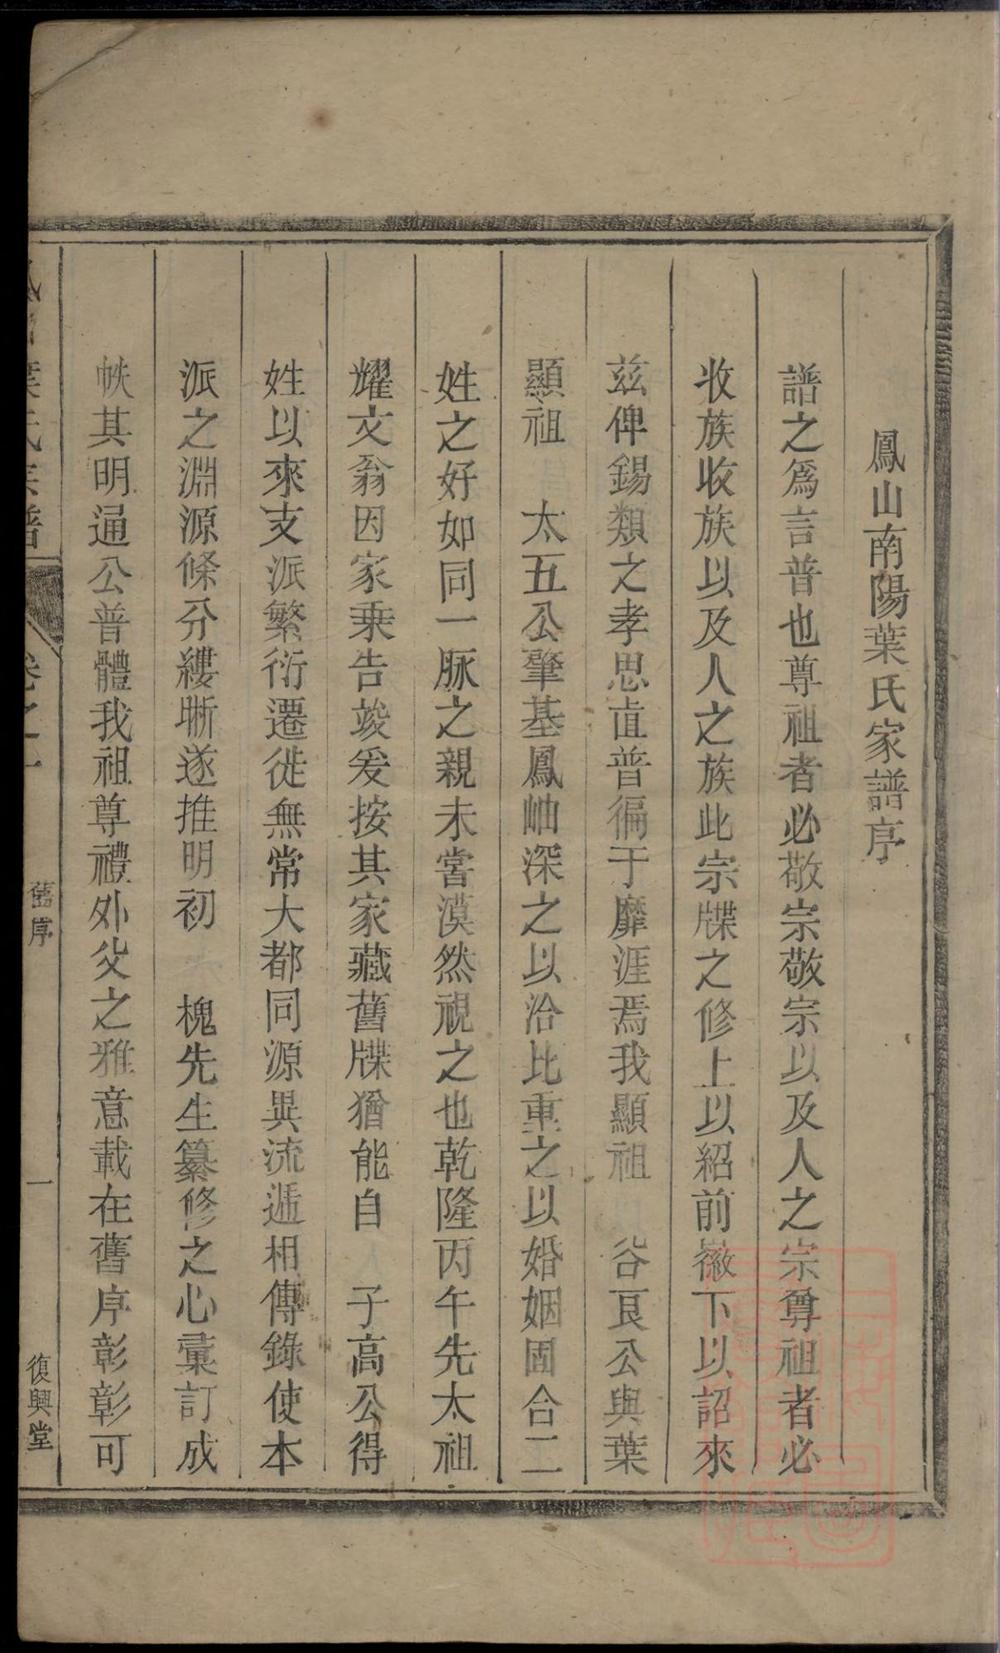 鳳山南陽葉氏家譜序
譜之爲言普也尊祖者必敬宗敬宗以及人之宗尊祖者必
收族收族以及人之族此宗牒之修上以紹前徽下以詔來
茲俾錫類之孝思直普徧于靡涯焉我顯祖　谷良公與葉
顯祖　太五公肇基鳳岫深之以洽比重之以婚姻固合二
姓之好如同一脈之親未嘗漠然視之也乾隆丙午先太祖
耀文翁因家乗告竣爰按其家藏舊牒猶能自　子高公得
姓以來支派繁衍遷徙無常大都同源異流遞相傳錄使本
派之淵源條分縷晰遂推明初　槐先生纂修之心彙訂成
帙其明通公普體我祖尊禮外父之雅意載在舊序彰彰可
葉氏宗譜
卷之一
舊序
一
復興堂